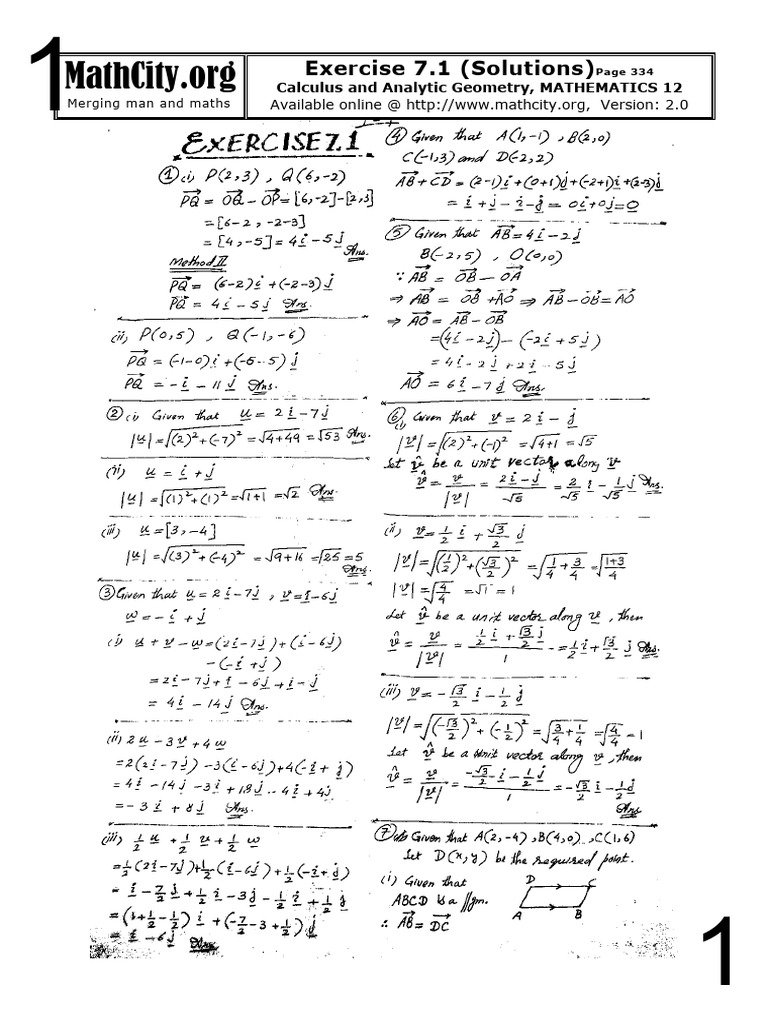 1
MathCity.org
Merging man and maths
Exercise 7.1 (Solutions)Page 334
Calculus and Analytic Geometry, MATHEMATICS 12
Available online @ http://www.mathcity.org, Version: 2.0
EXERCISE 7.1
① (i) P(2,3) , Q(6,-2)
PQ = OQ - OP = [6,-2]-[2,3]
= [6-2, -2-3]
= [4,-5] = 4i - 5j Ans.
Method II
PQ = (6-2)i + (-2-3)j
PQ = 4i - 5j Ans.
(ii) P(0,5) , Q(-1,-6)
PQ = (-1-0)i + (-6-5)j
PQ = -i - 11j Ans.
② (i) Given that u = 2i - 7j
|u| = √(2)²+(-7)² = √4+49 = √53 Ans.
(ii) u = i + j
|u| = √(1)²+(1)² = √1+1 = √2 Ans.
(iii) u = [3,-4]
|u| = √(3)²+(-4)² = √9+16 = √25 = 5
Ans.
③ Given that u = 2i - 7j, v = i - 6j
w = -i + j
(i) u + v - w = (2i-7j)+(i-6j)
-(-i+j)
= 2i - 7j + i - 6j + i - j
= 4i - 14j Ans.
(ii) 2u - 3v + 4w
= 2(2i-7j) - 3(i-6j) + 4(-i+j)
= 4i - 14j - 3i + 18j - 4i + 4j
= -3i + 8j Ans.
(iii) ½ u + ½ v + ½ w
= ½(2i-7j) + ½(i-6j) + ½(-i+j)
= i - 7/2 j + ½ i - 3j - ½ i + ½ j
= (1+½-½) i + (-7/2 - 3 + ½) j
= i - 6j Ans
④ Given that A(1,-1) , B(2,0)
C(-1,3) and D(-2,2)
AB + CD = (2-1)i + (0+1)j + (-2+1)i + (2-3)j
= i + j - i - j = 0i + 0j = 0
⑤ Given that AB = 4i - 2j
B(-2,5) , O(0,0)
∵ AB = OB - OA
⇒ AB = OB + AO ⇒ AB - OB = AO
⇒ AO = AB - OB
= (4i - 2j) - (-2i + 5j)
= 4i - 2j + 2i - 5j
AO = 6i - 7j Ans.
⑥ (i) Given that v = 2i - j
|v| = √(2)²+(-1)² = √4+1 = √5
Let v̂ be a unit vector along v
v̂ = v/|v| = 2i-j/√5 = 2/√5 i - 1/√5 j Ans.
(ii) v = ½ i + √3/2 j
|v| = √(½)²+(√3/2)² = √1/4 + 3/4 = √1+3/4
|v| = √4/4 = √1 = 1
Let v̂ be a unit vector along v, then
v̂ = v/|v| = ½ i + √3/2 j / 1 = ½ i + √3/2 j Ans.
(iii) v = -√3/2 i - ½ j
|v| = √(-√3/2)² + (-½)² = √3/4 + 1/4 = √4/4 = 1
Let v̂ be a unit vector along v, then
v̂ = v/|v| = -√3/2 i - ½ j / 1 = -√3/2 i - ½ j
Ans
⑦ Given that A(2,-4), B(4,0), C(1,6)
Let D(x,y) be the required point.
(i) Given that
ABCD is a //gm.
∴ AB = DC
D C
A B
1